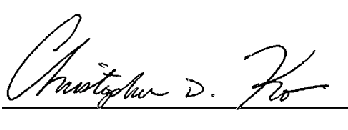 Christopher D. Ko